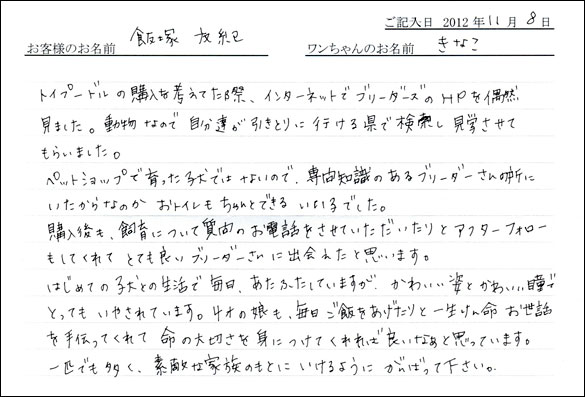 ご記入日 2012年11月8日
お客様のお名前 飯塚 友紀 ワンちゃんのお名前 きなこ
トイプードルの購入を考えてた際、インターネットでブリーダーズのHPを偶然
見ました。動物なので自分達が引きとりに行ける県で検索し見学させて
もらいました。
ペットショップで育った子犬ではないので、専門知識のあるブリーダーさんの所に
いたからなのか おトイレもちゃんとできる いい子でした。
購入後も、飼育について質問のお電話をさせていただいたりとアフターフォロー
もしてくれて とても良いブリーダーさんに出会えたと思います。
はじめての子犬との生活で毎日、あたふたしていますが、かわいい姿とかわいい瞳で
とってもいやされています。4才の娘も、毎日ご飯をあげたりと一生けん命 お世話
を手伝ってくれて 命の大切さを身につけてくれれば良いなぁと思っています。
一匹でも多く、素敵な家族のもとにいけるように がんばって下さい。